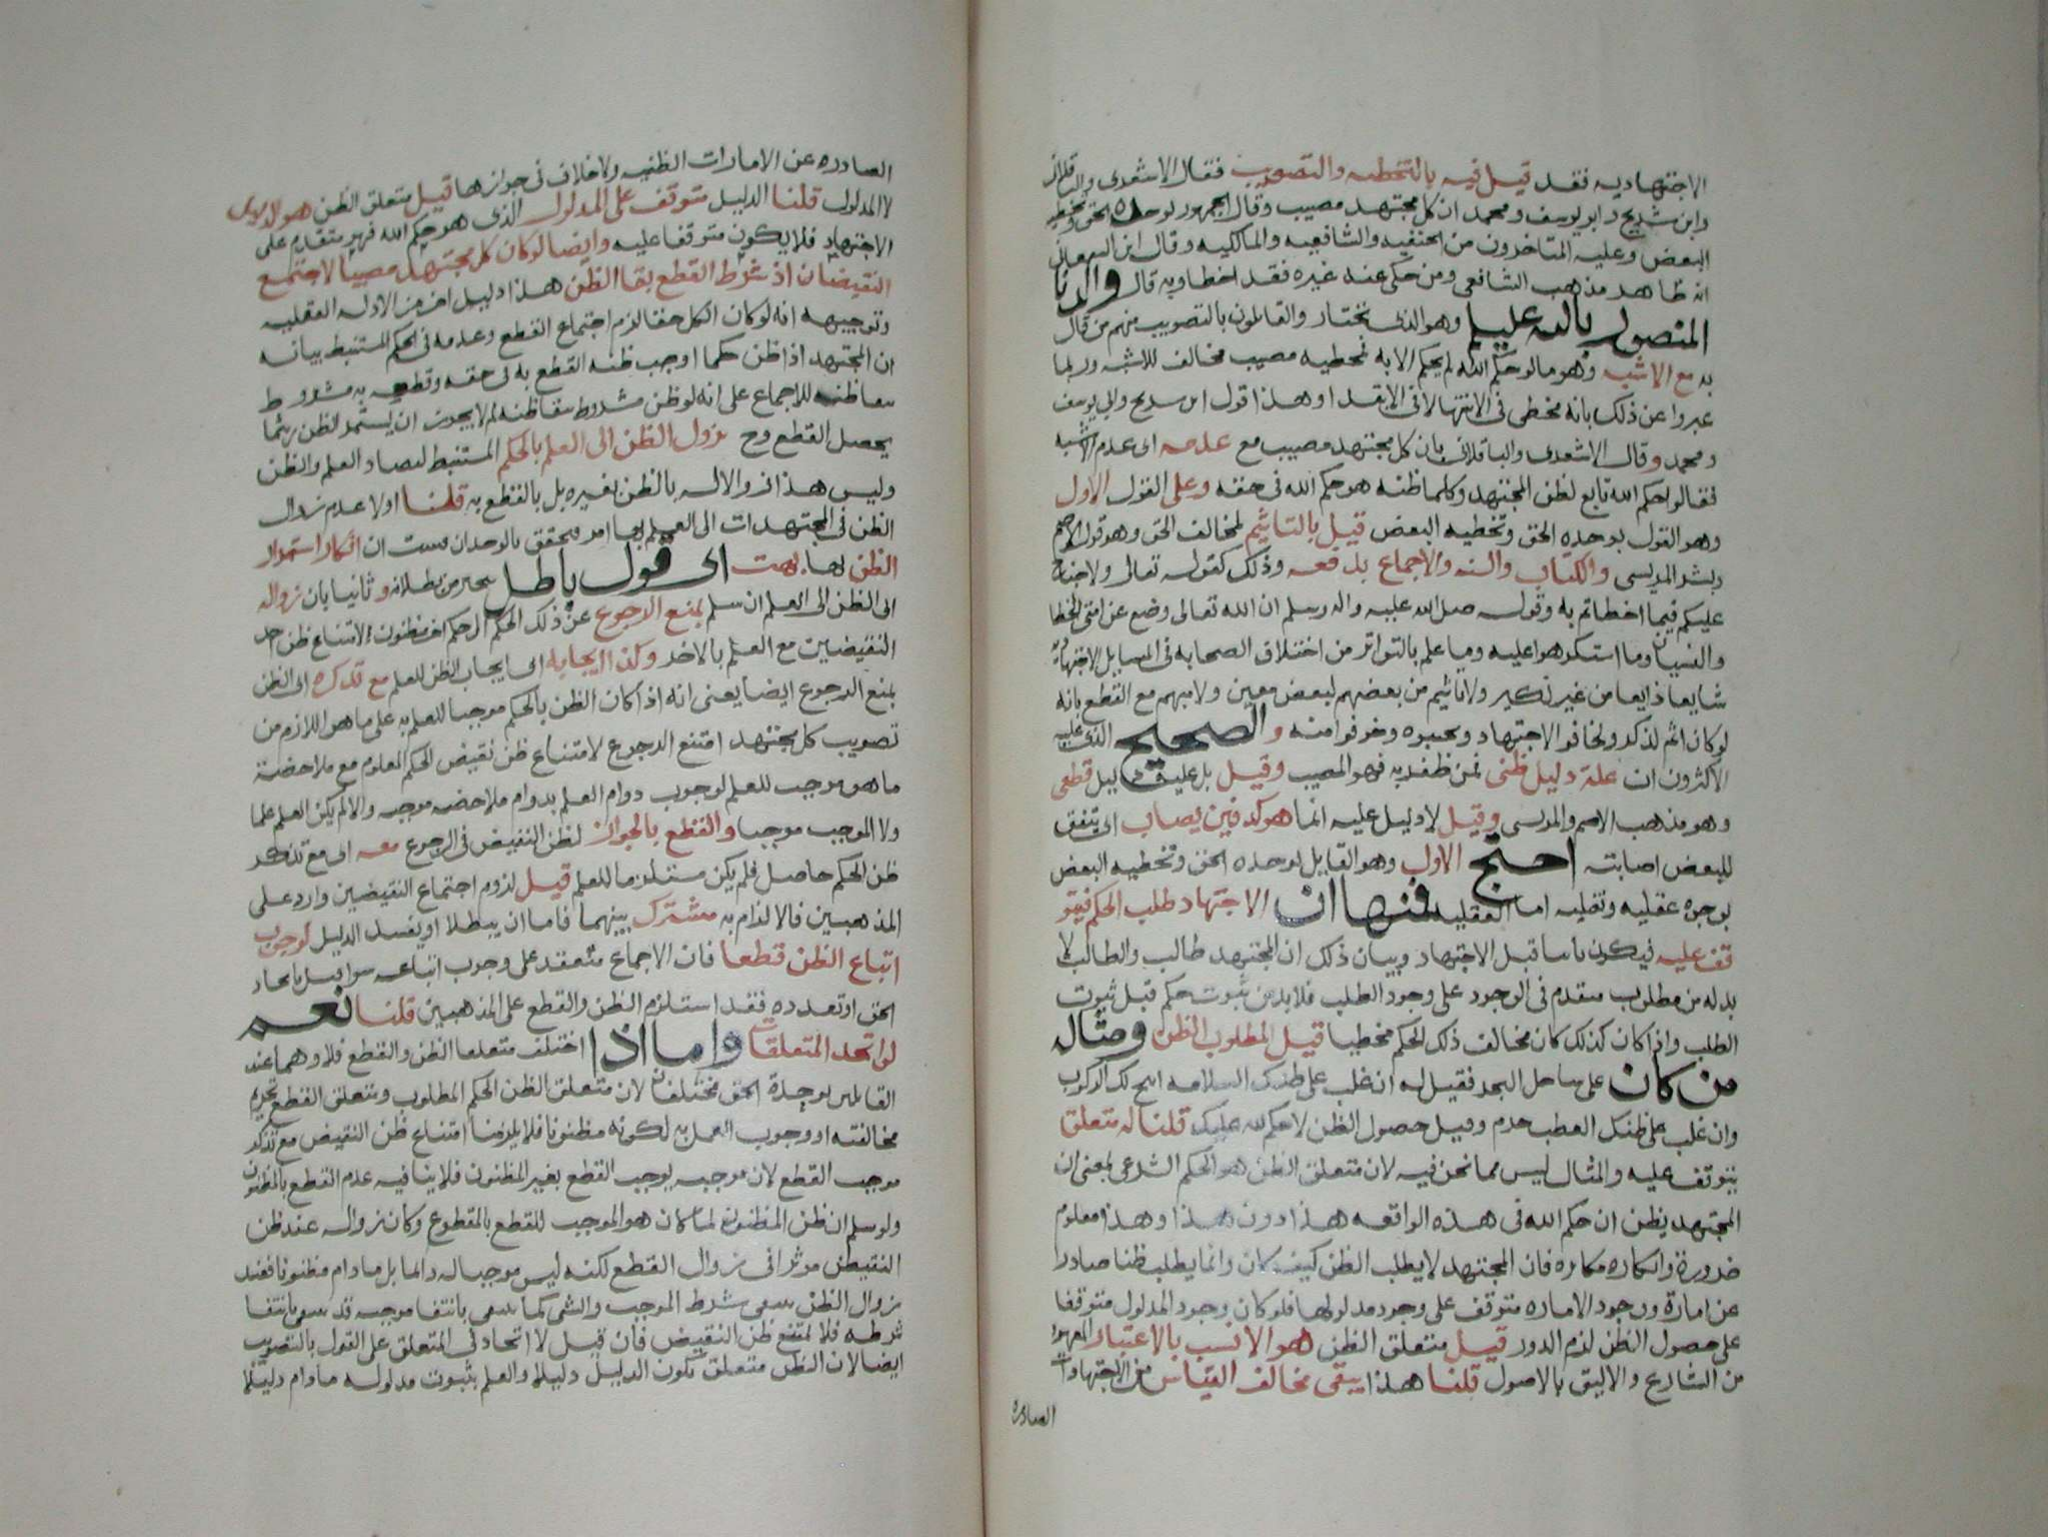 الاجتهاديه فقد قيل فيه بالتخطيه والتصويب فقال الاشعرى والباقلانى
وابن شريح وابو يوسف ومحمد ان كل مجتهد مصيب وقال الجمهور لوحده الحق وتخطيه
البعض وعليه المتاخرون من الحنفيه والشافعيه والمالكيه وقال ابن السمعانى
انه ظاهر مذهب الشافعى ومن حكى عنه غيره فقد اخطا وبه قال والدنا
المنصور بالله عليم وهو الذى نختار والقائلون بالتصويب منهم من قال
به مع الاشبه وهو ما لو حكم الله لم يحكم الا به فمخطيه مصيب مخالف للاشبه وربما
عبروا عن ذلك بانه مخطى فى الانتها لا فى الابتدا وهذا قول ابن سريح وابى يوسف
ومحمد وقال الاشعرى والباقلانى بان كل مجتهد مصيب مع عدمه اى عدم الاشبه
فقالوا حكم الله تابع لظن المجتهد وكلما ظنه هو حكم الله فى حقه وعلى القول الاول
وهو القول بوحده الحق وتخطيه البعض قيل بالتاثيم لمخالف الحق وهو قول الاصم
وبشر المريسى والكتاب والسنه والاجماع بدفعه وذلك كقوله تعالى ولا جناح
عليكم فيما اخطاتم به وقوله صلى الله عليه واله وسلم ان الله تعالى وضع عن امتى الخطا
والنسيان وما استكرهوا عليه وما علم بالتواتر من اختلاف الصحابه فى المسايل الاجتهاديه
شايعا ذايعا من غير نكير ولا تاثيم من بعضهم لبعض معين ولا مبهم مع القطع بانه
لو كان اثم لذكر ولخافوا الاجتهاد وتجنبوه وخوفوا منه والصحيح الذى عليه
الاكثرون ان عليه دليل ظنى فمن ظفر به فهو المصيب وقيل بل عليه دليل قطعى
وهو مذهب الاصم والمريسى وقيل لا دليل عليه انما هو كدفين يصاب اى يتفق
للبعض اصابته احتج الاول وهو القايل لوحده الحق وتخطيه البعض
بوجوه عقليه ونقليه اما العقليه فمنها ان الاجتهاد طلب الحكم فيتو
قف عليه فيكون ثابتا قبل الاجتهاد وبيان ذلك ان المجتهد طالب والطالب لا
بد له من مطلوب متقدم فى الوجود على وجود الطلب فلا بد من ثبوت حكم قبل ثبوت
الطلب واذا كان كذلك كان مخالف ذلك الحكم مخطيا قيل المطلوب الظن ومثاله
من كان على ساحل البحر فقيل له ان غلب على ظنك السلامه ابيح لك الركوب
وان غلب على ظنك العطب حرم وقيل حصول الظن لا حكم لله عليك قلنا له متعلق
يتوقف عليه والمثال ليس مما نحن فيه لان متعلق الظن هو الحكم الشرعى بمعنى ان
المجتهد يظن ان حكم الله فى هذه الواقعه هذا دون هذا وهذا معلوم
ضرورة وانكاره مكابره فان المجتهد لا يطلب الظن كيف كان وانما يطلب ظنا صادرا
عن امارة ووجود الاماره متوقف على وجود مدلولها فلو كان وجود المدلول متوقفا
على حصول الظن لزم الدور قيل متعلق الظن هو الانسب بالاعتبار المعهود
من الشارع والاليق بالاصول قلنا هذا يبقى مخالف القياس من الاجتهادات
الصادره
الصادره عن الامارات الظنيه ولا خلاف فى جوازها قيل متعلق الظن هو الدليل
لا المدلول قلنا الدليل متوقف على المدلول الذى هو حكم الله فهو متقدم على
الاجتهاد فلا يكون متوقفا عليه وايضا لو كان كل مجتهد مصيبا لاجتمع
النقيضان اذ شرط القطع بقا الظن هذا دليل اخر من الادله العقليه
وتوجيهه انه لو كان الكل حقا لزم اجتماع القطع وعدمه فى الحكم المستنبط بيانه
ان المجتهد اذا ظن حكما اوجب ظنه القطع به فى حقه وقطعه به مشروط
ببقا ظنه للاجماع على انه لو ظن مشروط ببقا ظنه لم لا يجوز ان يستمر الظن ريثما
يحصل القطع وح يزول الظن الى العلم بالحكم المستنبط لتضاد العلم والظن
وليس هذا زوالا له بالظن بغيره بل بالقطع به قلنا اولا عدم زوال
الظن فى المجتهدات الى العلم بها امر متحقق بالوجدان فثبت ان انكار استمرار
الظن بها بهت اى قول باطل يتحير من بطلانه وثانيا بان زواله
اى الظن الى العلم ان سلم يمنع الرجوع عن ذلك الحكم الى حكم اخر مظنون لامتناع ظن احد
النقيضين مع العلم بالاخر وكذا ايجابه اى ايجاب الظن للعلم مع تذكره اى الظن
يمنع الرجوع ايضا يعنى انه اذا كان الظن بالحكم موجبا للعلم به على ما هو اللازم من
تصويب كل مجتهد امتنع الرجوع لامتناع ظن نقيض الحكم المعلوم مع ملاحضة
ما هو موجب للعلم لوجوب دوام العلم بدوام ملاحضه موجبه والا لم يكن العلم علما
ولا الموجب موجبا والقطع بالجواز لظن النقيض فى الرجوع معه اى مع تذكر
ظن الحكم حاصل فلم يكن مستلزما للعلم قيل لزوم اجتماع النقيضين وارد على
المذهبين فالالزام به مشترك بينهما فاما ان يبطلا او يفسد الدليل لوجوب
اتباع الظن قطعا فان الاجماع منعقد على وجوب اتباعه سوا قيل باتحاد
الحق او تعدده فقد استلزم الظن والقطع على المذهبين قلنا نعم
لو اتحد المتعلقان واما اذا اختلف متعلقا الظن والقطع فلا وهما عند
القائلين بوحدة الحق مختلفان لان متعلق الظن الحكم المطلوب ومتعلق القطع تحريم
مخالفته او وجوب العمل به لكونه مظنونا فلا يلزمنا امتناع ظن النقيض مع تذكر
موجب القطع لان موجبه يوجب القطع بغير المظنون فلا ينافيه عدم القطع بالمظنون
ولو سلم ان ظن المظنون لما كان هو الموجب للقطع بالمقطوع وكان زواله عند ظن
النقيض موثرا فى زوال القطع لكنه ليس موجبا له دائما بل ما دام مظنونا فعند
زوال الظن ينتفى شرط الموجب والشى كما ينتفى بانتفا موجبه قد ينتفى بانتفا
شرطه فلا يمتنع ظن النقيض فان قيل لا اتحاد فى المتعلق على القول بالتصويب
ايضا لان الظن متعلق بكون الدليل دليلا والعلم بثبوت مدلوله ما دام دليلا